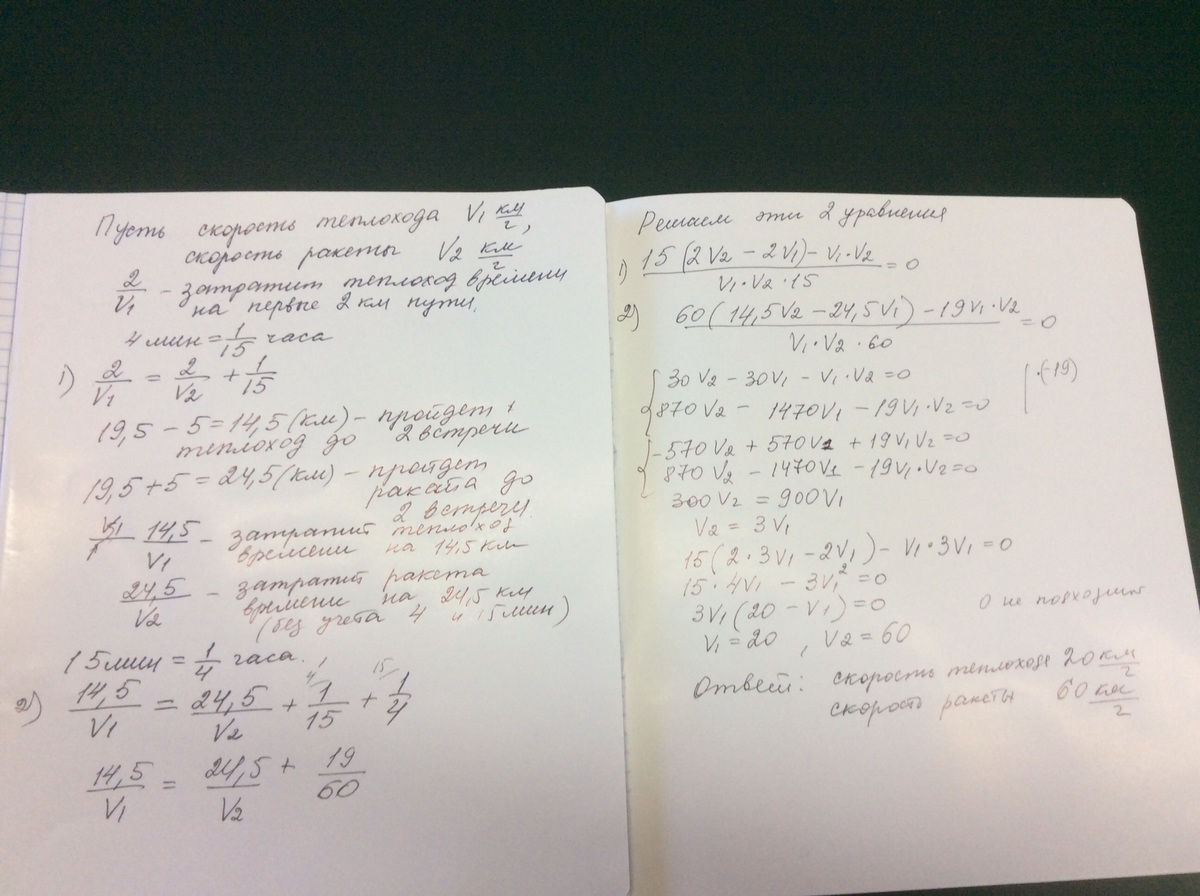 Пусть скорость теплохода V₁ км/г,
скорость ракеты V₂ км/г
2/V₁ – затратит теплоход времени
на первые 2 км пути.
4 мин = 1/15 часа
1) 2/V₁ = 2/V₂ + 1/15
19,5 – 5 = 14,5 (км) – пройдет
теплоход до 2 встречи
19,5 + 5 = 24,5 (км) – пройдет
ракета до
2 встречи.
14,5/V₁ – затратит теплоход
времени на 14,5 км
24,5/V₂ – затратит ракета
времени на 24,5 км
(без учета 4 и 15 мин)
15 мин = 1/4 часа.
2) 14,5/V₁ = 24,5/V₂ + 1/15 + 1/4
14,5/V₁ = 24,5/V₂ + 19/60
Решаем эти 2 уравнения
1) (15(2V₂ – 2V₁) – V₁·V₂)/(V₁·V₂·15) = 0
2) (60(14,5V₂ – 24,5V₁) – 19V₁·V₂)/(V₁·V₂·60) = 0
{ 30V₂ – 30V₁ – V₁·V₂ = 0 | ·(-19)
870V₂ – 1470V₁ – 19V₁·V₂ = 0
{ –570V₂ + 570V₁ + 19V₁V₂ = 0
870V₂ – 1470V₁ – 19V₁·V₂ = 0
300V₂ = 900V₁
V₂ = 3V₁
15(2·3V₁ – 2V₁) – V₁·3V₁ = 0
15·4V₁ – 3V₁² = 0
3V₁(20 – V₁) = 0 0 не подходит
V₁ = 20, V₂ = 60
Ответ: скорость теплохода 20 км/г
скорость ракеты 60 км/г